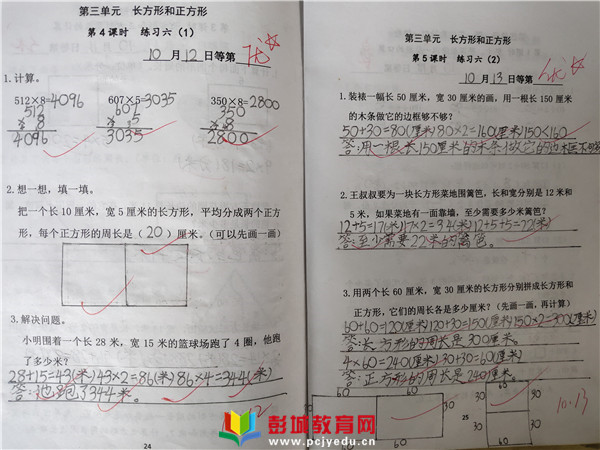 第三单元 长方形和正方形
第4课时 练习六（1）
10月12日等第 优☆
1.计算。
512×8=4096 607×5=3035 350×8=2800
512 607 350
× 8 × 5 × 8
4096 3035 2800
2.想一想，填一填。
把一个长10厘米，宽5厘米的长方形，平均分成两个正方
形，每个正方形的周长是（20）厘米。（可以先画一画）
3.解决问题。
小明围着一个长28米，宽15米的篮球场跑了4圈，他跑
了多少米？
28+15=43(米) 43×2=86(米) 86×4=344(米)
答：他跑了344米。
24
第三单元 长方形和正方形
第5课时 练习六（2）
10月13日等第 优☆
1.装裱一幅长50厘米，宽30厘米的画，用一根长150厘米
的木条做它的边框够不够？
50+30=80(厘米) 80×2=160(厘米) 150<160
答：用一根长150厘米的木条做它的边框不够
2.王叔叔要为一块长方形菜地围篱笆，长和宽分别是12米和
5米，如果菜地有一面靠墙，至少需要多少米篱笆？
12+5=17(米) 17×2=34(米) 12+5+5=22(米)
答：至少需要22米的篱笆。
3.用两个长60厘米，宽30厘米的长方形分别拼成长方形和
正方形，它们的周长各是多少厘米？（先画一画，再计算）
60+60=120(厘米) 120+30=150(厘米) 150×2=300(厘米)
答：长方形的周长是300厘米。
4×60=240(厘米) 30+30=60(厘米)
答：正方形的周长是240厘米。
30 30
60 60
60
30 30
30 30
60
10.13
25
彭城教育网
www.pcjyedu.cn